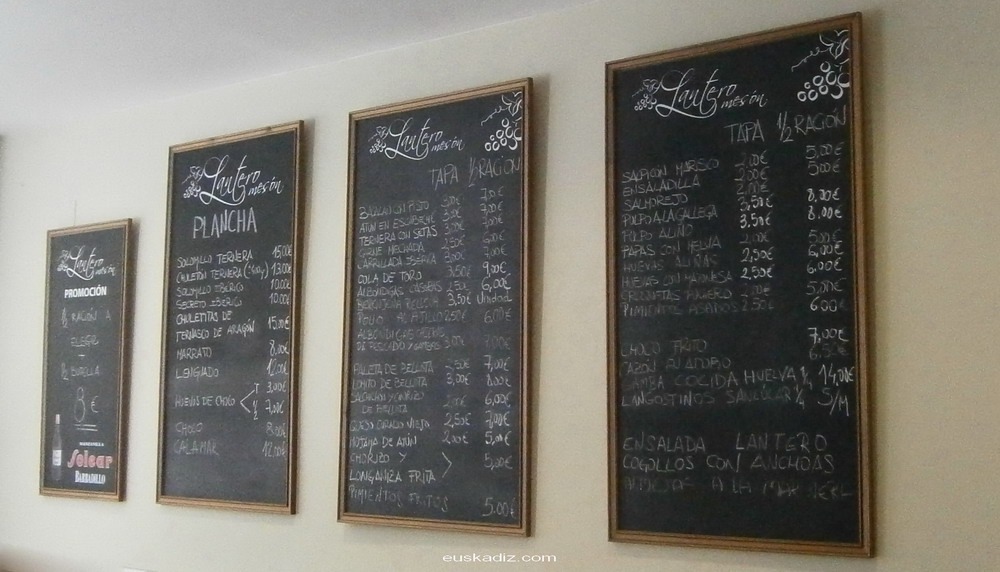 Lantero
mesón
PROMOCIÓN
½ RACIÓN A
ELEGIR
½ BOTELLA
8€
MANZANILLA
Solear
BARBADILLO
Lantero
mesón
PLANCHA
SOLOMILLO TERNERA 15,00€
CHULETÓN TERNERA 13,00€
SOLOMILLO IBÉRICO 10,00€
SECRETO IBÉRICO 10,00€
CHULETITAS DE
TERNASCO DE ARAGÓN 15,00€
MARRAJO 8,00€
LENGUADO 12,00€
HUEVAS DE CHOCO T 3,00€
½ 7,00€
CHOCO 8,00€
CALAMAR 12,00€
Lantero
mesón
TAPA ½ RACIÓN
BACALAO CON PISTO 3,00€ 7,00€
ATÚN EN ESCABECHE 3,00€ 7,00€
TERNERA CON SETAS 3,00€ 7,00€
CARNE MECHADA 2,50€ 6,00€
CARRILLADA IBÉRICA 3,00€ 7,00€
COLA DE TORO 3,50€ 9,00€
ALBÓNDIGAS CASERAS 2,50€ 6,00€
3,50€ Unidad
POLLO AL AJILLO 2,50€ 6,00€
ALBÓNDIGAS CASERAS
DE PESCADO Y GAMBAS 3,00€ 7,00€
PALETA DE BELLOTA 2,50€ 7,00€
LOMITO DE BELLOTA 3,00€ 8,00€
SALCHICHÓN Y CHORIZO
DE BELLOTA 2,00€ 6,00€
QUESO CURADO VIEJO 2,50€ 7,00€
MOJAMA DE ATÚN 2,00€ 5,00€
CHORIZO Y
LONGANIZA FRITA 5,00€
PIMIENTOS FRITOS 5,00€
Lantero
mesón
TAPA ½ RACIÓN
SALPICÓN MARISCO 2,00€ 5,00€
ENSALADILLA 2,00€ 5,00€
SALMOREJO 2,00€
PULPO A LA GALLEGA 3,50€ 8,00€
PULPO ALIÑO 3,50€ 8,00€
PAPAS CON MELVA 2,00€ 5,00€
HUEVAS ALIÑÁS 2,50€ 6,00€
HUEVAS CON MAHONESA 2,50€ 6,00€
CROQUETAS PUCHERO 2,00€ 5,00€
PIMIENTOS ASADOS 2,50€ 6,00€
CHOCO FRITO 7,00€
CAZÓN ALIÑADO 6,50€
GAMBA COCIDA HUELVA ¼ 14,00€
LANGOSTINOS SANLÚCAR ¼ S/M
ENSALADA LANTERO
COGOLLOS CON ANCHOAS
A LA
euskadiz.com